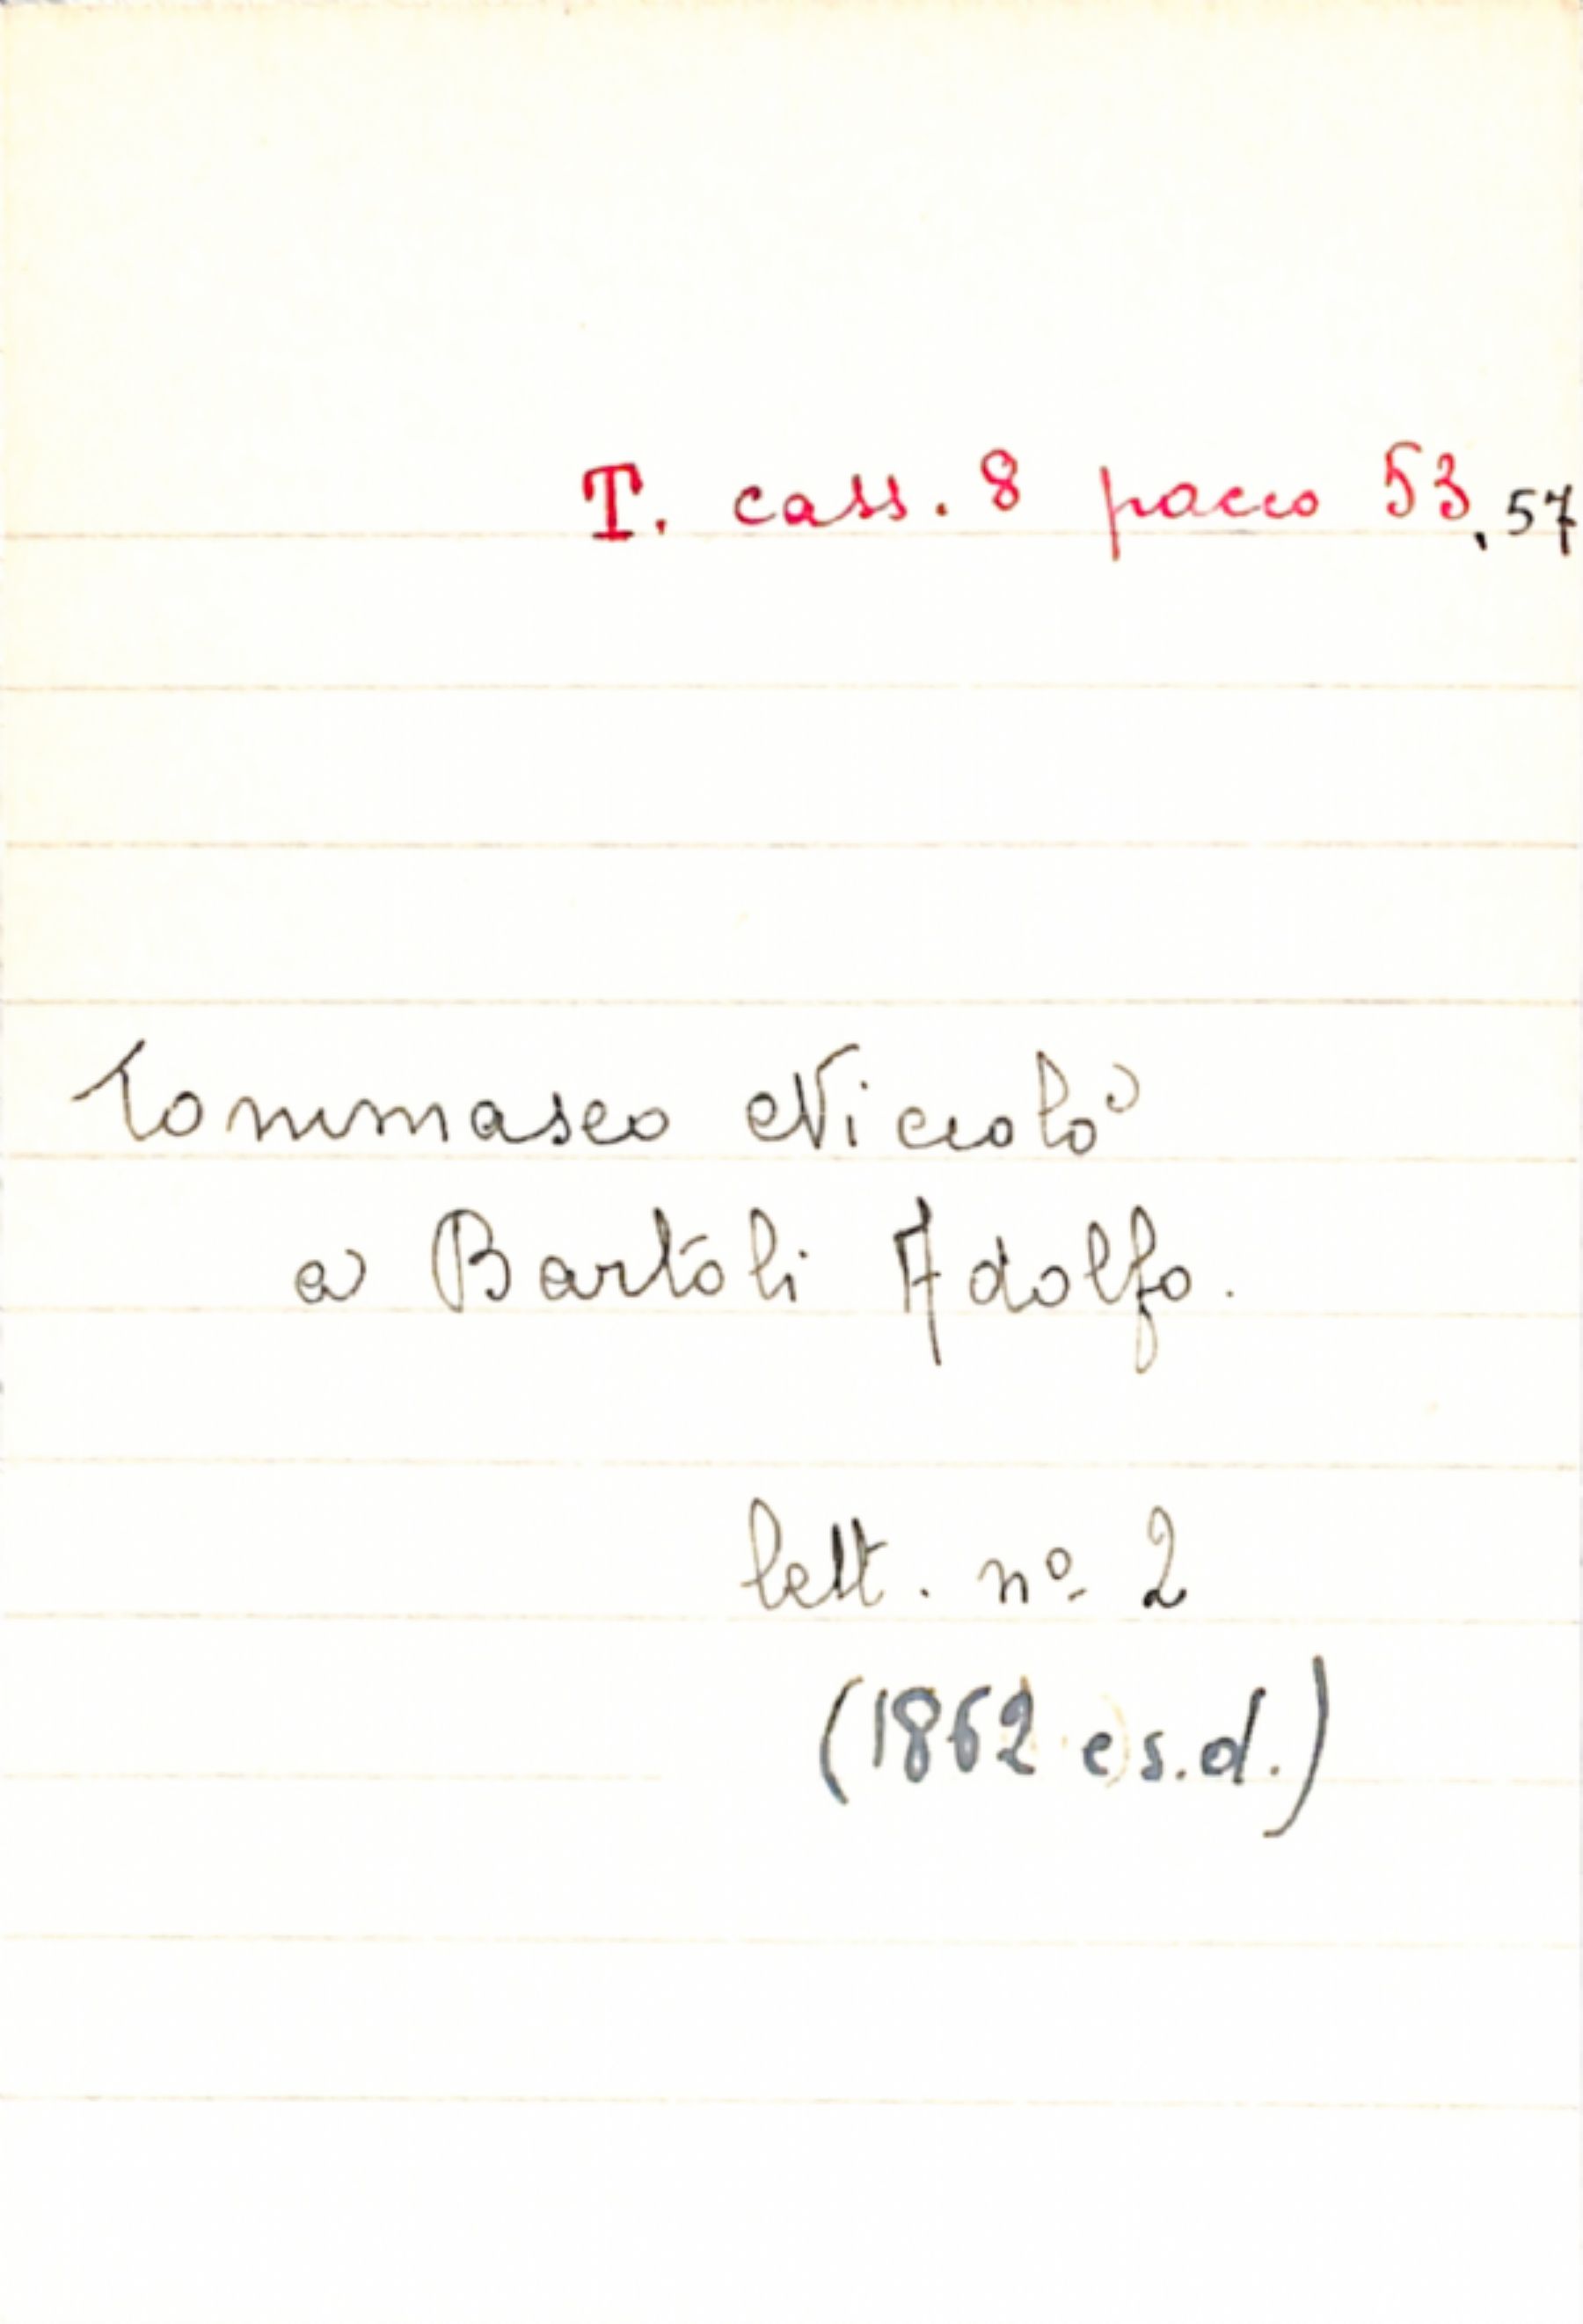 T. cass. 8 pacco 53,57
Tommaseo Niccolò
a Bartoli Adolfo.
lett. nº 2
(1862 e s.d.)